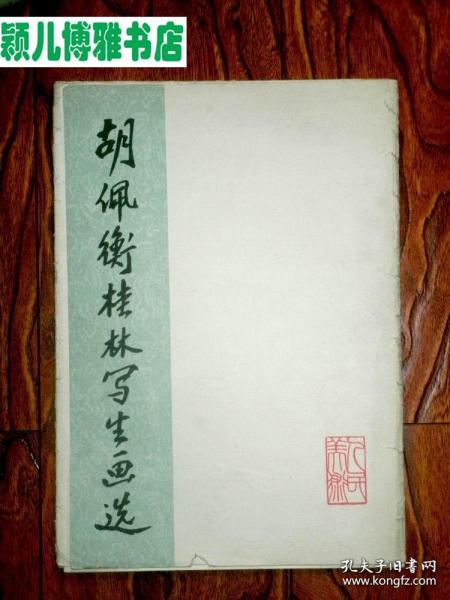 颖儿博雅书店
胡佩衡桂林写生画选
人民美术
孔夫子旧书网
www.kongfz.com